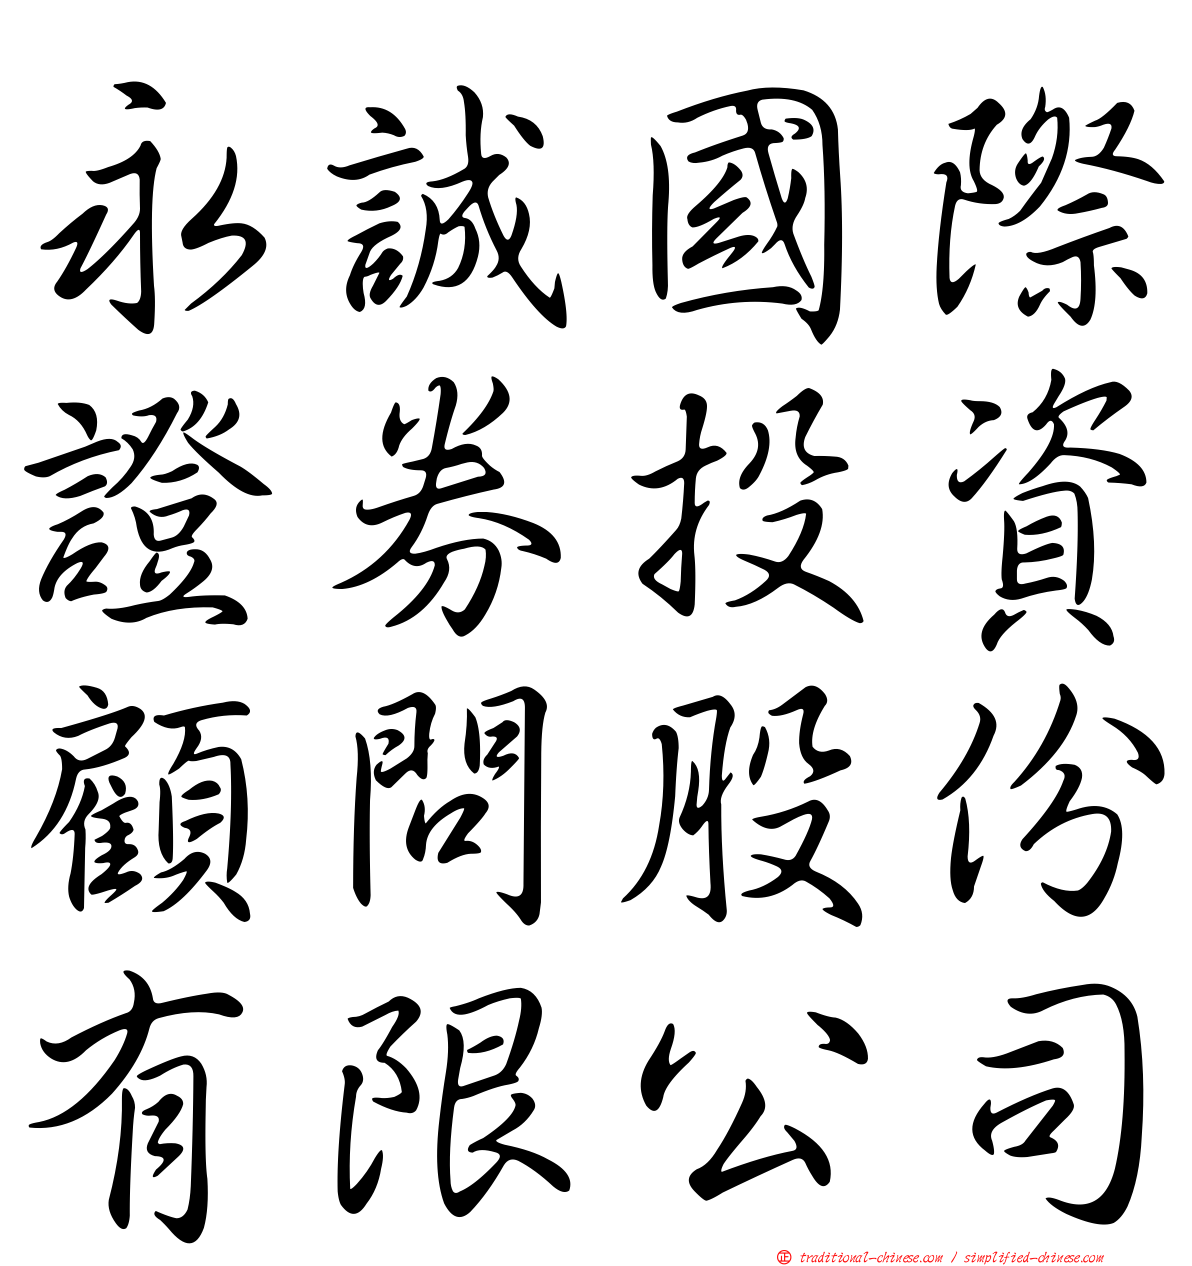 永誠國際
證券投資
顧問股份
有限公司
正 traditional-chinese.com / simplified-chinese.com